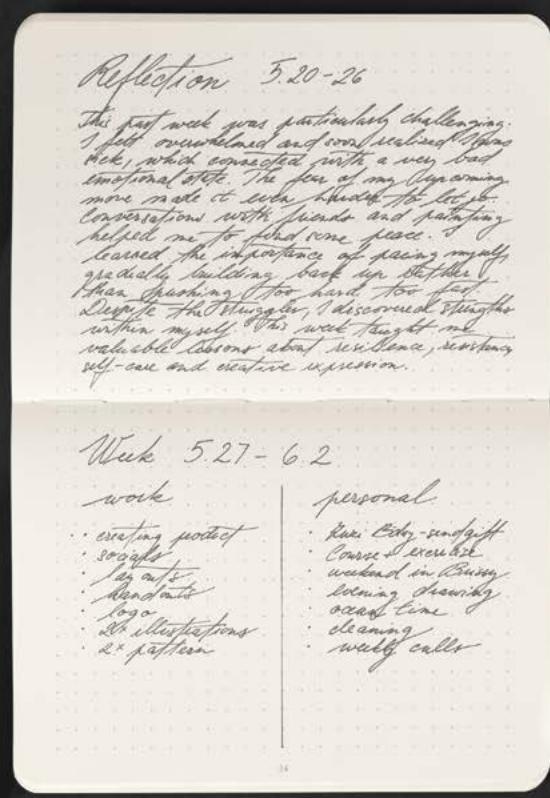 Reflection 5.20-26
This past week was particularly challenging.
I felt overwhelmed and soon realised I was
sick, which connected with a very bad
emotional state. The fear of my upcoming
move made it even harder to let go.
Conversations with friends and painting
helped me to find some peace. I
learned the importance of pacing myself,
gradually building back up rather
than pushing too hard too fast.
Despite the struggles, I discovered strengths
within myself. This week taught me
valuable lessons about resilience,
self-care and creative expression.
Week 5.27 - 6.2
work
· creating product
· socials
· layouts
· handouts
· logo
· 2x illustrations
· 2x pattern
personal
· send gift
· Course + exercise
· weekend in
· evening drawing
· ocean time
· cleaning
· weekly calls